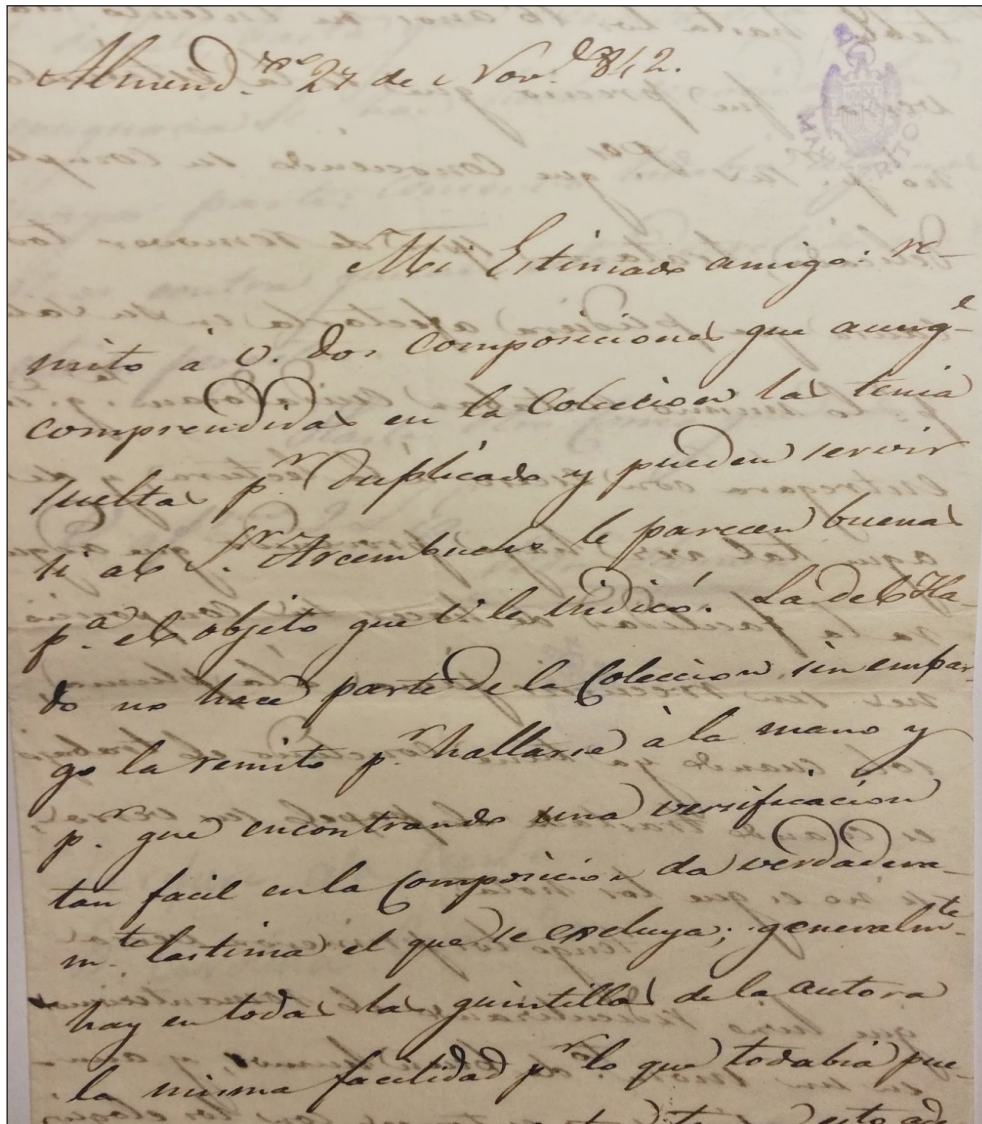 Almend.º 27 de Nov.e 842.
Mi Estimado amigo: re-
mito á V. dos composiciones que aunq.e
comprendidas en la Coleccion las tenia
sueltas p.r duplicado y pueden servir
si al S.r Arcembucho le parecen buenas
p.a el objeto que V. le indicó. La del Ha-
do no hace parte de la Coleccion, sin embar-
go la remito p.r hallarse á la mano y
p.r que encontrando una versificacion
tan facil en la composicion da verdadera-
m.te lastima el que se excluya; generalm.te
hay en todas las quintillas de la autora
la misma facilidad p.r lo que todabia pue-